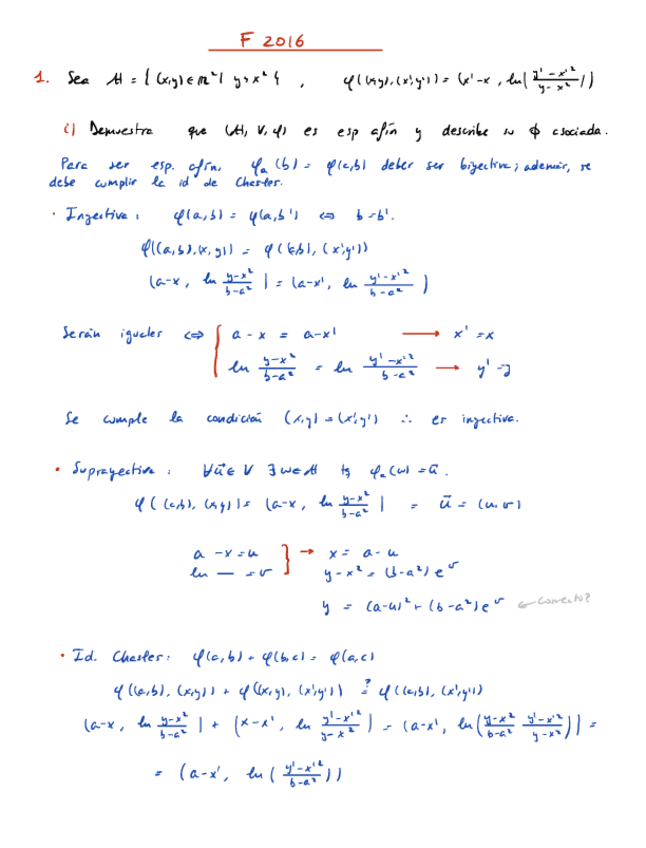 F 2016
1. Sea A = { (x,y) ∈ ℝ² | y > x² } , φ((x,y),(x',y')) = (x'-x, ln(y'-x'²/y-x²))
i) Demuestra que (A, V, φ) es esp afín y describe su φ asociada.
Para ser esp. afín, φₐ(b) = φ(a,b) deber ser biyectiva; además, se
debe cumplir la id de Chasles.
· Inyectiva: φ(a,b) = φ(a,b') ⇔ b=b'.
φ((a,b),(x,y)) = φ((a,b), (x',y'))
(a-x, ln y-x²/b-a²) = (a-x', ln y'-x'²/b-a²)
Serán iguales ⇔ { a-x = a-x' → x'=x
ln y-x²/b-a² = ln y'-x'²/b-a² → y'=y
Se cumple la condición (x,y) = (x',y') ∴ es inyectiva.
· Suprayectiva: ∀ū ∈ V ∃ w ∈ A tq φₐ(w) = ū.
φ((a,b), (x,y)) = (a-x, ln y-x²/b-a²) = ū = (u,v)
a-x=u } → x = a-u
ln — = v y-x² = (b-a²)eᵛ
y = (a-u)² + (b-a²)eᵛ ← Correcto?
· Id. Chasles: φ(a,b) + φ(b,c) = φ(a,c)
φ((a,b), (x,y)) + φ((x,y), (x',y')) ?= φ((a,b), (x',y'))
(a-x, ln y-x²/b-a²) + (x-x', ln y'-x'²/y-x²) = (a-x', ln(y-x²/b-a² y'-x'²/y-x²)) =
= (a-x', ln(y'-x'²/b-a²))